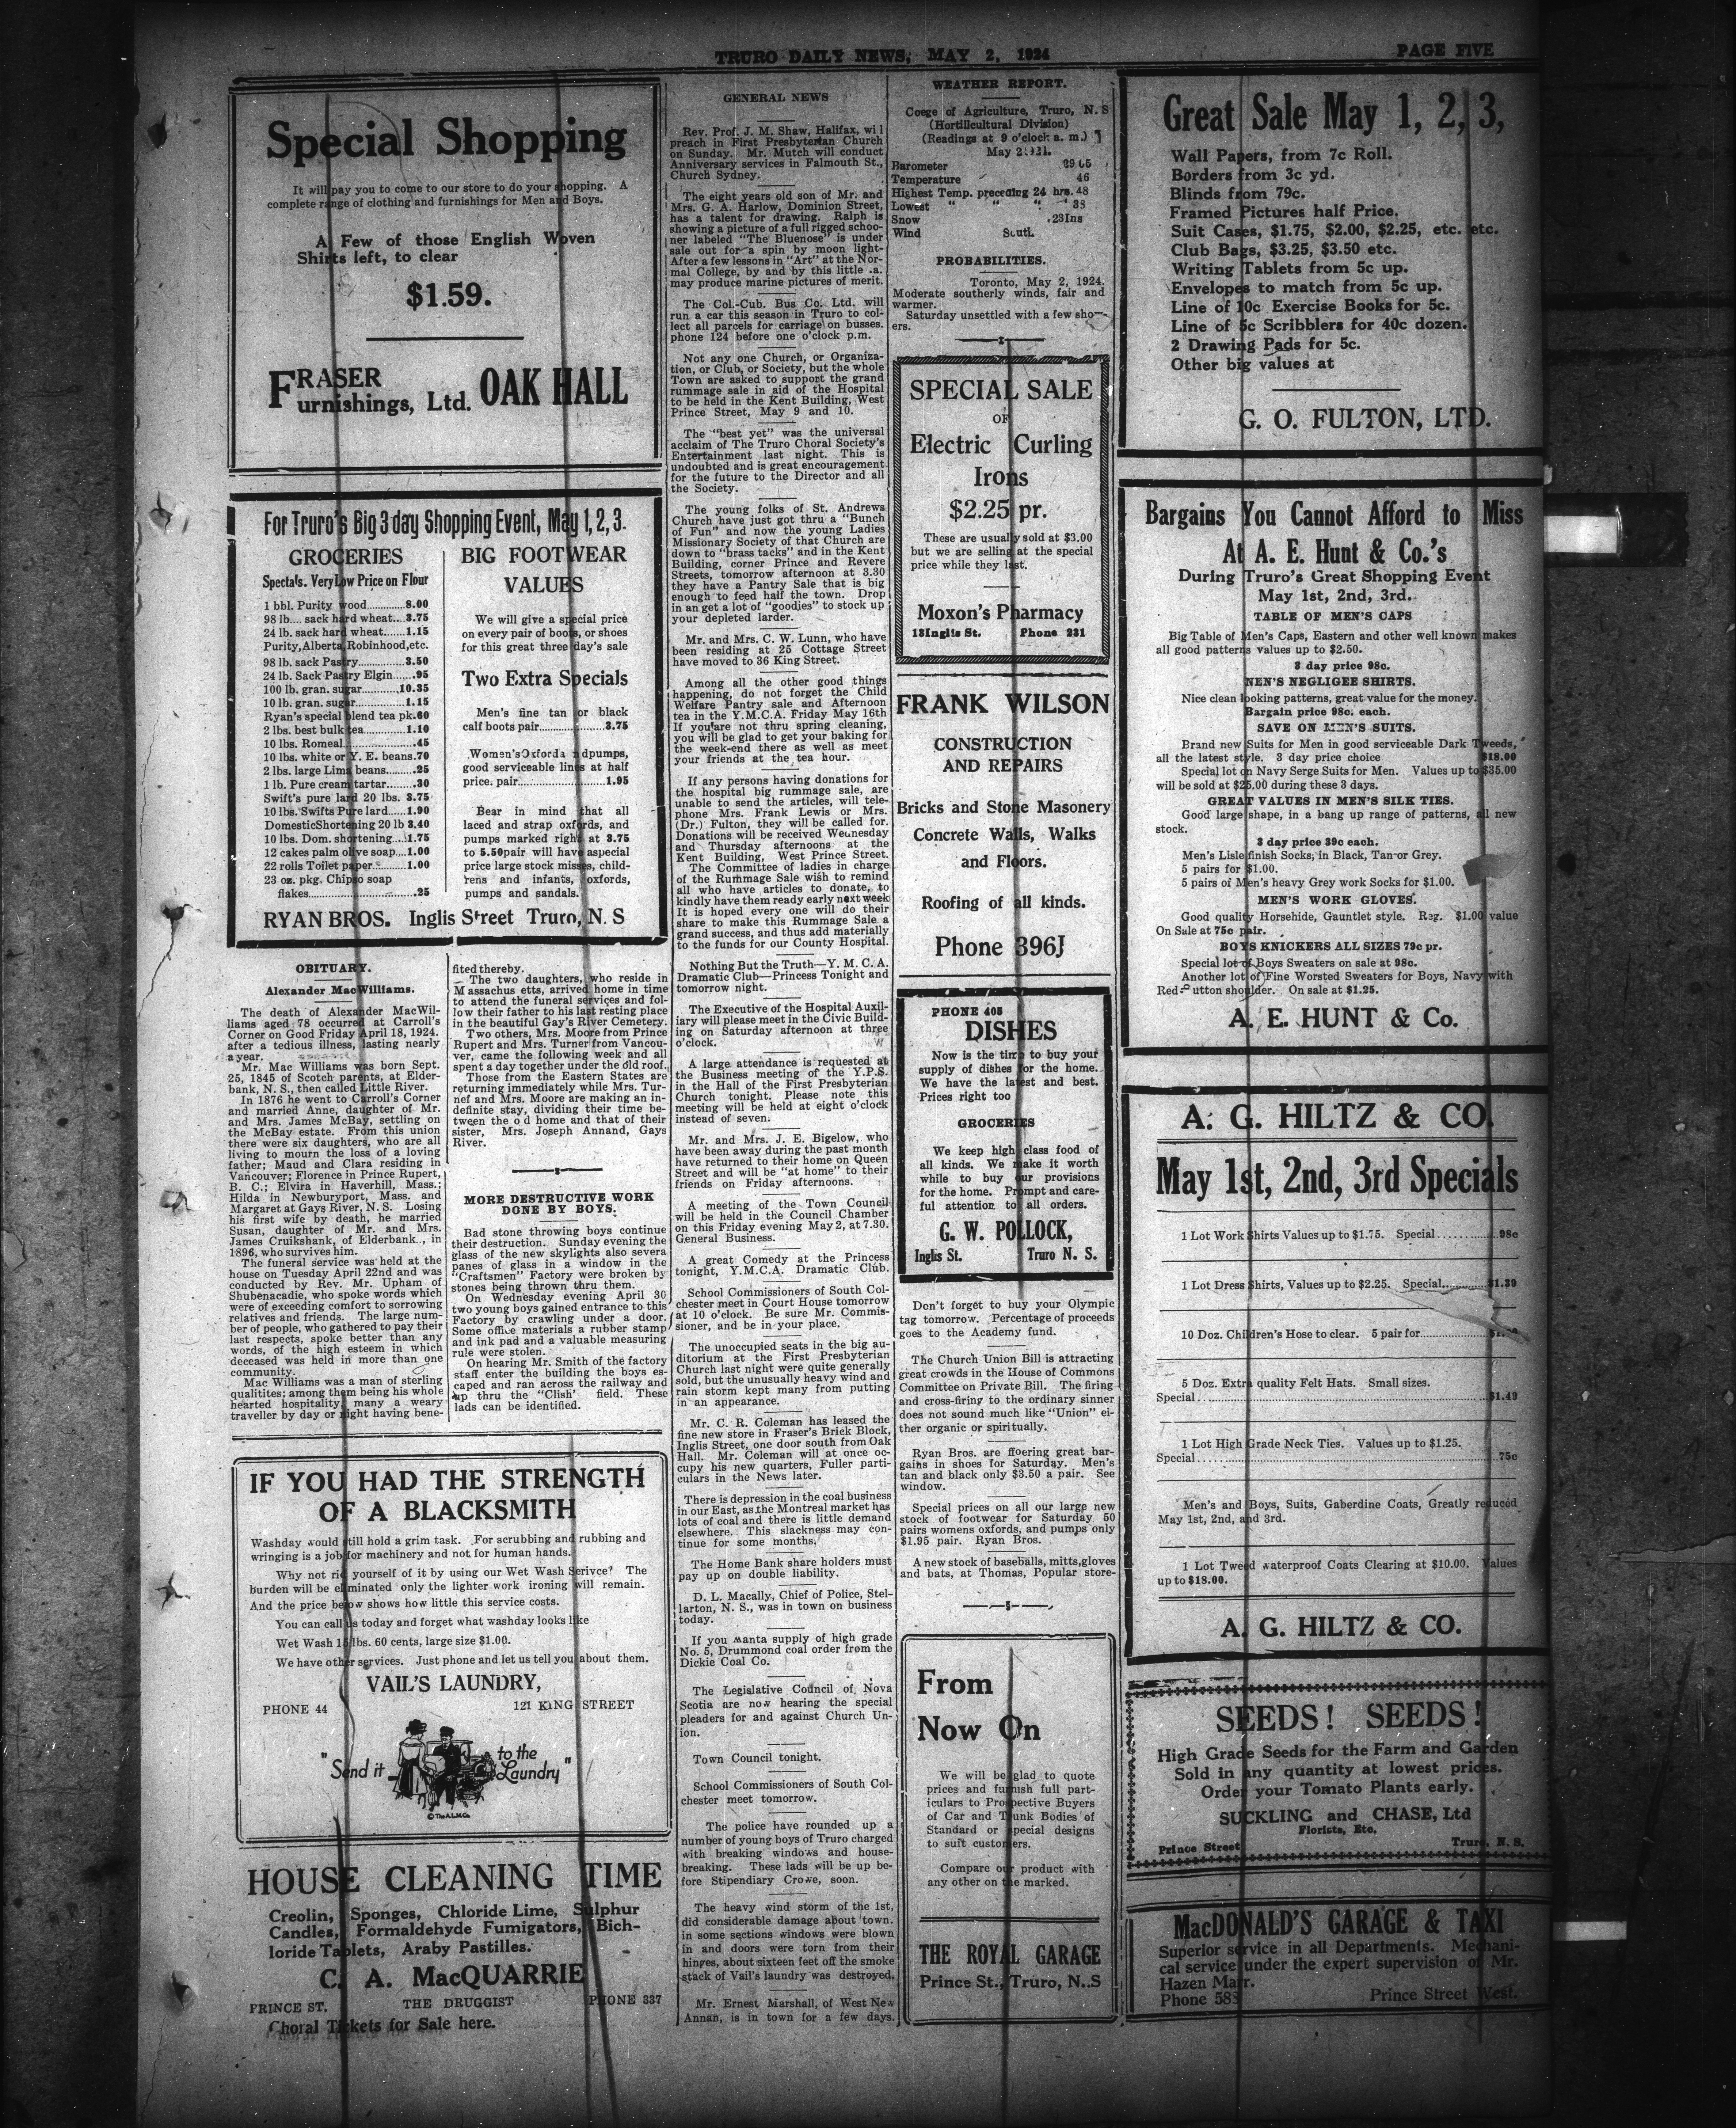 TRURO DAILY NEWS, MAY 2, 1924
PAGE FIVE
Special Shopping
It will pay you to come to our store to do your shopping. A
complete range of clothing and furnishings for Men and Boys.
A Few of those English Woven
Shirts left, to clear
$1.59.
FRASER
Furnishings, Ltd. OAK HALL
For Truro's Big 3 day Shopping Event, May 1, 2, 3.
GROCERIES
Spectals. Very Low Price on Flour
1 bbl. Purity wood.............8.00
98 lb.... sack hard wheat...3.75
24 lb. sack hard wheat.......1.15
Purity, Alberta, Robinhood, etc.
98 lb. sack Pastry...............3.50
24 lb. Sack Pastry Elgin......95
100 lb. gran. sugar............10.35
10 lb. gran. sugar................1.15
Ryan's special blend tea pk.60
2 lbs. best bulk tea..............1.10
10 lbs. Romeal.......................45
10 lbs. white or Y. E. beans.70
2 lbs. large Lima beans.........25
1 lb. Pure cream tartar........30
Swift's pure lard 20 lbs. 3.75
10 lbs. Swifts Pure lard.....1.90
DomesticShortening 20 lb 3.40
10 lbs. Dom. shortening....1.75
12 cakes palm olive soap....1.00
22 rolls Toilet paper...........1.00
23 oz. pkg. Chipso soap
flakes....................................25
BIG FOOTWEAR
VALUES
We will give a special price
on every pair of boots, or shoes
for this great three day's sale
Two Extra Specials
Men's fine tan or black
calf boots pair......................3.75
Women's Oxforda ndpumps,
good serviceable lines at half
price. pair.............................1.95
Bear in mind that all
laced and strap oxfords, and
pumps marked right at 3.75
to 5.50pair will have aspecial
price large stock misses, child-
rens and infants, oxfords,
pumps and sandals.
RYAN BROS. Inglis Street Truro, N. S
OBITUARY.
Alexander MacWilliams.
The death of Alexander MacWil-
liams aged 78 occurred at Carroll's
Corner on Good Friday April 18, 1924.
after a tedious illness, lasting nearly
a year.
Mr. Mac Williams was born Sept.
25, 1845 of Scotch parents, at Elder-
bank, N. S., then called Little River.
In 1876 he went to Carroll's Corner
and married Anne, daughter of Mr.
and Mrs. James McBay, settling on
the McBay estate. From this union
there were six daughters, who are all
living to mourn the loss of a loving
father; Maud and Clara residing in
Vancouver; Florence in Prince Rupert,
B. C.; Elvira in Haverhill, Mass.;
Hilda in Newburyport, Mass. and
Margaret at Gays River, N. S. Losing
his first wife by death, he married
Susan, daughter of Mr. and Mrs.
James Cruikshank, of Elderbank., in
1896, who survives him.
The funeral service was held at the
house on Tuesday April 22nd and was
conducted by Rev. Mr. Upham of
Shubenacadie, who spoke words which
were of exceeding comfort to sorrowing
relatives and friends. The large num-
ber of people, who gathered to pay their
last respects, spoke better than any
words, of the high esteem in which
deceased was held in more than one
community.
Mac Williams was a man of sterling
qualitites; among them being his whole
hearted hospitality, many a weary
traveller by day or night having bene-
fited thereby.
The two daughters, who reside in
Massachus etts, arrived home in time
to attend the funeral services and fol-
low their father to his last resting place
in the beautiful Gay's River Cemetery.
Two others, Mrs. Moore from Prince
Rupert and Mrs. Turner from Vancou-
ver, came the following week and all
spent a day together under the old roof.
Those from the Eastern States are
returning immediately while Mrs. Tur-
nef and Mrs. Moore are making an in-
definite stay, dividing their time be-
tween the o d home and that of their
sister, Mrs. Joseph Annand, Gays
River.
MORE DESTRUCTIVE WORK
DONE BY BOYS.
Bad stone throwing boys continue
their destruction. Sunday evening the
glass of the new skylights also severa
panes of glass in a window in the
"Craftsmen" Factory were broken by
stones being thrown thru them.
On Wednesday evening April 30
two young boys gained entrance to this
Factory by crawling under a door.
Some office materials a rubber stamp
and ink pad and a valuable measuring
rule were stolen.
On hearing Mr. Smith of the factory
staff enter the building the boys es-
caped and ran across the railway and
up thru the "Clish' field. These
lads can be identified.
IF YOU HAD THE STRENGTH
OF A BLACKSMITH
Washday would still hold a grim task. For scrubbing and rubbing and
wringing is a job for machinery and not for human hands.
Why not rid yourself of it by using our Wet Wash Serivce? The
burden will be eliminated only the lighter work ironing will remain.
And the price below shows how little this service costs.
You can call us today and forget what washday looks like
Wet Wash 15 lbs. 60 cents, large size $1.00.
We have other services. Just phone and let us tell you about them.
VAIL'S LAUNDRY,
PHONE 44
121 KING STREET
"Send it to the Laundry"
© The A.L.M.Co.
HOUSE CLEANING TIME
Creolin, Sponges, Chloride Lime, Sulphur
Candles, Formaldehyde Fumigators, Bich-
loride Tablets, Araby Pastilles.
C. A. MacQUARRIE
PRINCE ST. THE DRUGGIST PHONE 337
Choral Tickets for Sale here.
GENERAL NEWS
Rev. Prof. J. M. Shaw, Halifax, wi l
preach in First Presbyterian Church
on Sunday. Mr. Mutch will conduct
Anniversary services in Falmouth St.,
Church Sydney.
The eight years old son of Mr. and
Mrs. G. A. Harlow, Dominion Street,
has a talent for drawing. Ralph is
showing a picture of a full rigged schoo-
ner labeled "The Bluenose" is under
sale out for a spin by moon light-
After a few lessons in "Art" at the Nor-
mal College, by and by this little .a.
may produce marine pictures of merit.
The Col.-Cub. Bus Co. Ltd. will
run a car this season in Truro to col-
lect all parcels for carriage on busses.
phone 124 before one o'clock p.m.
Not any one Church, or Organiza-
tion, or Club, or Society, but the whole
Town are asked to support the grand
rummage sale in aid of the Hospital
to be held in the Kent Building, West
Prince Street, May 9 and 10.
The "best yet" was the universal
acclaim of The Truro Choral Society's
Entertainment last night. This is
undoubted and is great encouragement
for the future to the Director and all
the Society.
The young folks of St. Andrews
Church have just got thru a "Bunch
of Fun" and now the young Ladies
Missionary Society of that Church are
down to "brass tacks" and in the Kent
Building, corner Prince and Revere
Streets, tomorrow afternoon at 3.30
they have a Pantry Sale that is big
enough to feed half the town. Drop
in an get a lot of "goodies" to stock up
your depleted larder.
Mr. and Mrs. C. W. Lunn, who have
been residing at 25 Cottage Street
have moved to 36 King Street.
Among all the other good things
happening, do not forget the Child
Welfare Pantry sale and Afternoon
tea in the Y.M.C.A. Friday May 16th
If you are not thru spring cleaning,
you will be glad to get your baking for
the week-end there as well as meet
your friends at the tea hour.
If any persons having donations for
the hospital big rummage sale, are
unable to send the articles, will tele-
phone Mrs. Frank Lewis or Mrs.
(Dr.) Fulton, they will be called for.
Donations will be received Wednesday
and Thursday afternoons at the
Kent Building, West Prince Street.
The Committee of ladies in charge
of the Rummage Sale wish to remind
all who have articles to donate, to
kindly have them ready early next week
It is hoped every one will do their
share to make this Rummage Sale a
grand success, and thus add materially
to the funds for our County Hospital.
Nothing But the Truth—Y. M. C. A.
Dramatic Club—Princess Tonight and
tomorrow night.
The Executive of the Hospital Auxil-
iary will please meet in the Civic Build-
ing on Saturday afternoon at three
o'clock.
A large attendance is requested at
the Business meeting of the Y.P.S.
in the Hall of the First Presbyterian
Church tonight. Please note this
meeting will be held at eight o'clock
instead of seven.
Mr. and Mrs. J. E. Bigelow, who
have been away during the past month
have returned to their home on Queen
Street and will be "at home" to their
friends on Friday afternoons.
A meeting of the Town Council
will be held in the Council Chamber
on this Friday evening May 2, at 7.30.
General Business.
A great Comedy at the Princess
tonight, Y.M.C.A. Dramatic Club.
School Commissioners of South Col-
chester meet in Court House tomorrow
at 10 o'clock. Be sure Mr. Commis-
sioner, and be in your place.
The unoccupied seats in the big au-
ditorium at the First Presbyterian
Church last night were quite generally
sold, but the unusually heavy wind and
rain storm kept many from putting
in an appearance.
Mr. C. R. Coleman has leased the
fine new store in Fraser's Brick Block,
Inglis Street, one door south from Oak
Hall. Mr. Coleman will at once oc-
cupy his new quarters, Fuller parti-
culars in the News later.
There is depression in the coal business
in our East, as the Montreal market has
lots of coal and there is little demand
elsewhere. This slackness may con-
tinue for some months.
The Home Bank share holders must
pay up on double liability.
D. L. Macally, Chief of Police, Stel-
larton, N. S., was in town on business
today.
If you manta supply of high grade
No. 5, Drummond coal order from the
Dickie Coal Co.
The Legislative Council of Nova
Scotia are now hearing the special
pleaders for and against Church Un-
ion.
Town Council tonight.
School Commissioners of South Col-
chester meet tomorrow.
The police have rounded up a
number of young boys of Truro charged
with breaking windows and house-
breaking. These lads will be up be-
fore Stipendiary Crowe, soon.
The heavy wind storm of the 1st,
did considerable damage about town.
in some sections windows were blown
in and doors were torn from their
hinges, about sixteen feet off the smoke
stack of Vail's laundry was destroyed.
Mr. Ernest Marshall, of West New
Annan, is in town for a few days.
WEATHER REPORT.
Coege of Agriculture, Truro, N. S
(Hortillcultural Division)
(Readings at 9 o'clock a. m.)
May 2
Barometer 29 65
Temperature 46
Highest Temp. preceding 24 hrs. 48
Lowest " " " 38
Snow .23Ins
Wind South.
PROBABILITIES.
Toronto, May 2, 1924.
Moderate southerly winds, fair and
warmer.
Saturday unsettled with a few show-
ers.
SPECIAL SALE
OF
Electric Curling
Irons
$2.25 pr.
These are usualy sold at $3.00
but we are selling at the special
price while they last.
Moxon's Pharmacy
13 Inglis St. Phone 231
FRANK WILSON
CONSTRUCTION
AND REPAIRS
Bricks and Stone Masonery
Concrete Walls, Walks
and Floors.
Roofing of all kinds.
Phone 396J
PHONE 405
DISHES
Now is the time to buy your
supply of dishes for the home.
We have the latest and best.
Prices right too
GROCERIES
We keep high class food of
all kinds. We make it worth
while to buy our provisions
for the home. Prompt and care-
ful attention to all orders.
G. W. POLLOCK,
Inglis St. Truro N. S.
Don't forget to buy your Olympic
tag tomorrow. Percentage of proceeds
goes to the Academy fund.
The Church Union Bill is attracting
great crowds in the House of Commons
Committee on Private Bill. The firing
and cross-firing to the ordinary sinner
does not sound much like "Union" ei-
ther organic or spiritually.
Ryan Bros. are ffoering great bar-
gains in shoes for Saturday. Men's
tan and black only $3.50 a pair. See
window.
Special prices on all our large new
stock of footwear for Saturday 50
pairs womens oxfords, and pumps only
$1.95 pair. Ryan Bros.
A new stock of baseballs, mitts, gloves
and bats, at Thomas, Popular store-
From
Now On
We will be glad to quote
prices and furnish full part-
iculars to Prospective Buyers
of Car and Trunk Bodies of
Standard or special designs
to suit customers.
Compare our product with
any other on the marked.
THE ROYAL GARAGE
Prince St., Truro, N..S
Great Sale May 1, 2, 3,
Wall Papers, from 7c Roll.
Borders from 3c yd.
Blinds from 79c.
Framed Pictures half Price.
Suit Cases, $1.75, $2.00, $2.25, etc. etc.
Club Bags, $3.25, $3.50 etc.
Writing Tablets from 5c up.
Envelopes to match from 5c up.
Line of 10c Exercise Books for 5c.
Line of 5c Scribblers for 40c dozen.
2 Drawing Pads for 5c.
Other big values at
G. O. FULTON, LTD.
Bargains You Cannot Afford to Miss
At A. E. Hunt & Co.'s
During Truro's Great Shopping Event
May 1st, 2nd, 3rd.
TABLE OF MEN'S CAPS
Big Table of Men's Caps, Eastern and other well known makes
all good patterns values up to $2.50.
3 day price 98c.
NEN'S NEGLIGEE SHIRTS.
Nice clean looking patterns, great value for the money.
Bargain price 98c. each.
SAVE ON MEN'S SUITS.
Brand new Suits for Men in good serviceable Dark Tweeds,
all the latest style. 3 day price choice $18.00
Special lot on Navy Serge Suits for Men. Values up to $35.00
will be sold at $25.00 during these 3 days.
GREAT VALUES IN MEN'S SILK TIES.
Good large shape, in a bang up range of patterns, all new
stock.
3 day price 39c each.
Men's Lisle finish Socks, in Black, Tan or Grey.
5 pairs for $1.00.
5 pairs of Men's heavy Grey work Socks for $1.00.
MEN'S WORK GLOVES.
Good quality Horsehide, Gauntlet style. Reg. $1.00 value
On Sale at 75c pair.
BOYS KNICKERS ALL SIZES 79c pr.
Special lot of Boys Sweaters on sale at 98c.
Another lot of Fine Worsted Sweaters for Boys, Navy with
Red utton shoulder. On sale at $1.25.
A. E. HUNT & Co.
A. G. HILTZ & CO.
May 1st, 2nd, 3rd Specials
1 Lot Work Shirts Values up to $1.75. Special............98c
1 Lot Dress Shirts, Values up to $2.25. Special............$1.39
10 Doz. Children's Hose to clear. 5 pair for
5 Doz. Extra quality Felt Hats. Small sizes.
Special............$1.49
1 Lot High Grade Neck Ties. Values up to $1.25.
Special............75c
Men's and Boys, Suits, Gaberdine Coats, Greatly reduced
May 1st, 2nd, and 3rd.
1 Lot Tweed waterproof Coats Clearing at $10.00. Values
up to $18.00.
A. G. HILTZ & CO.
SEEDS! SEEDS!
High Grade Seeds for the Farm and Garden
Sold in any quantity at lowest prices.
Order your Tomato Plants early.
SUCKLING and CHASE, Ltd
Florists, Etc.
Prince Street Truro, N. S.
MacDONALD'S GARAGE & TAXI
Superior service in all Departments. Mechani-
cal service under the expert supervision of Mr.
Hazen Marr.
Phone 583 Prince Street West.